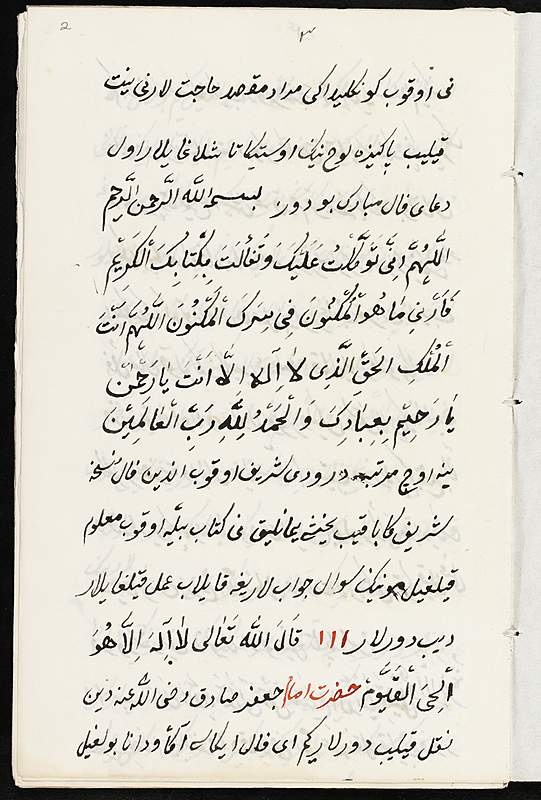 2
٣
نی اوقوب کونکلیداکی مراد مقصد حاجت لارنی نیت
قیلیب پاکیزه لوح نینک اوستیکا تاشلاغایلار اول
دعای فال مبارک بو دور بسم الله الرحمن الرحیم
اَللّٰهُمَّ اِنِّی تَوَکَّلْتُ عَلَیْکَ وَتَفَألْتَ بِکِتَابِکَ الْکَرِیْمِ
فَأَرْنِی مَا هُوَ الْمَکْنُونَ فِی سِرِکَ الْمَکْنُونَ اَللّٰهُمَّ اَنْتَ
الْمُلْکِ الْحَقَّ الَّذِی لَا اِلٰهَ اِلَّا اَنْتَ یَا رَحْمٰنُ
یَا رَحِیْمِ بِعِبَادِکَ وَالْحَمْدُ لِلّٰهِ رَبِّ الْعَالَمِیْنَ
ینه اوچ مرتبه درودی شریف اوقوب اندین فال نسخه
شریف کا باقیب یخشی یمانلیق نی کتاب بیله اوقوب معلوم
قیلغیل مونینک سوال جواب لاریغه قایلاب عمل قیلغایلار
دیب دورلار ااا قَالَ اللّٰهُ تَعَالٰی لَا اِلٰهَ اِلَّا هُوَ
الْحَیُّ الْقَیُّومُ حضرت امام جعفر صادق رضی الله عنه دین
نقل قیلیب دورلار کیم ای فال ایکاسی آکاه و دانا بولغیل